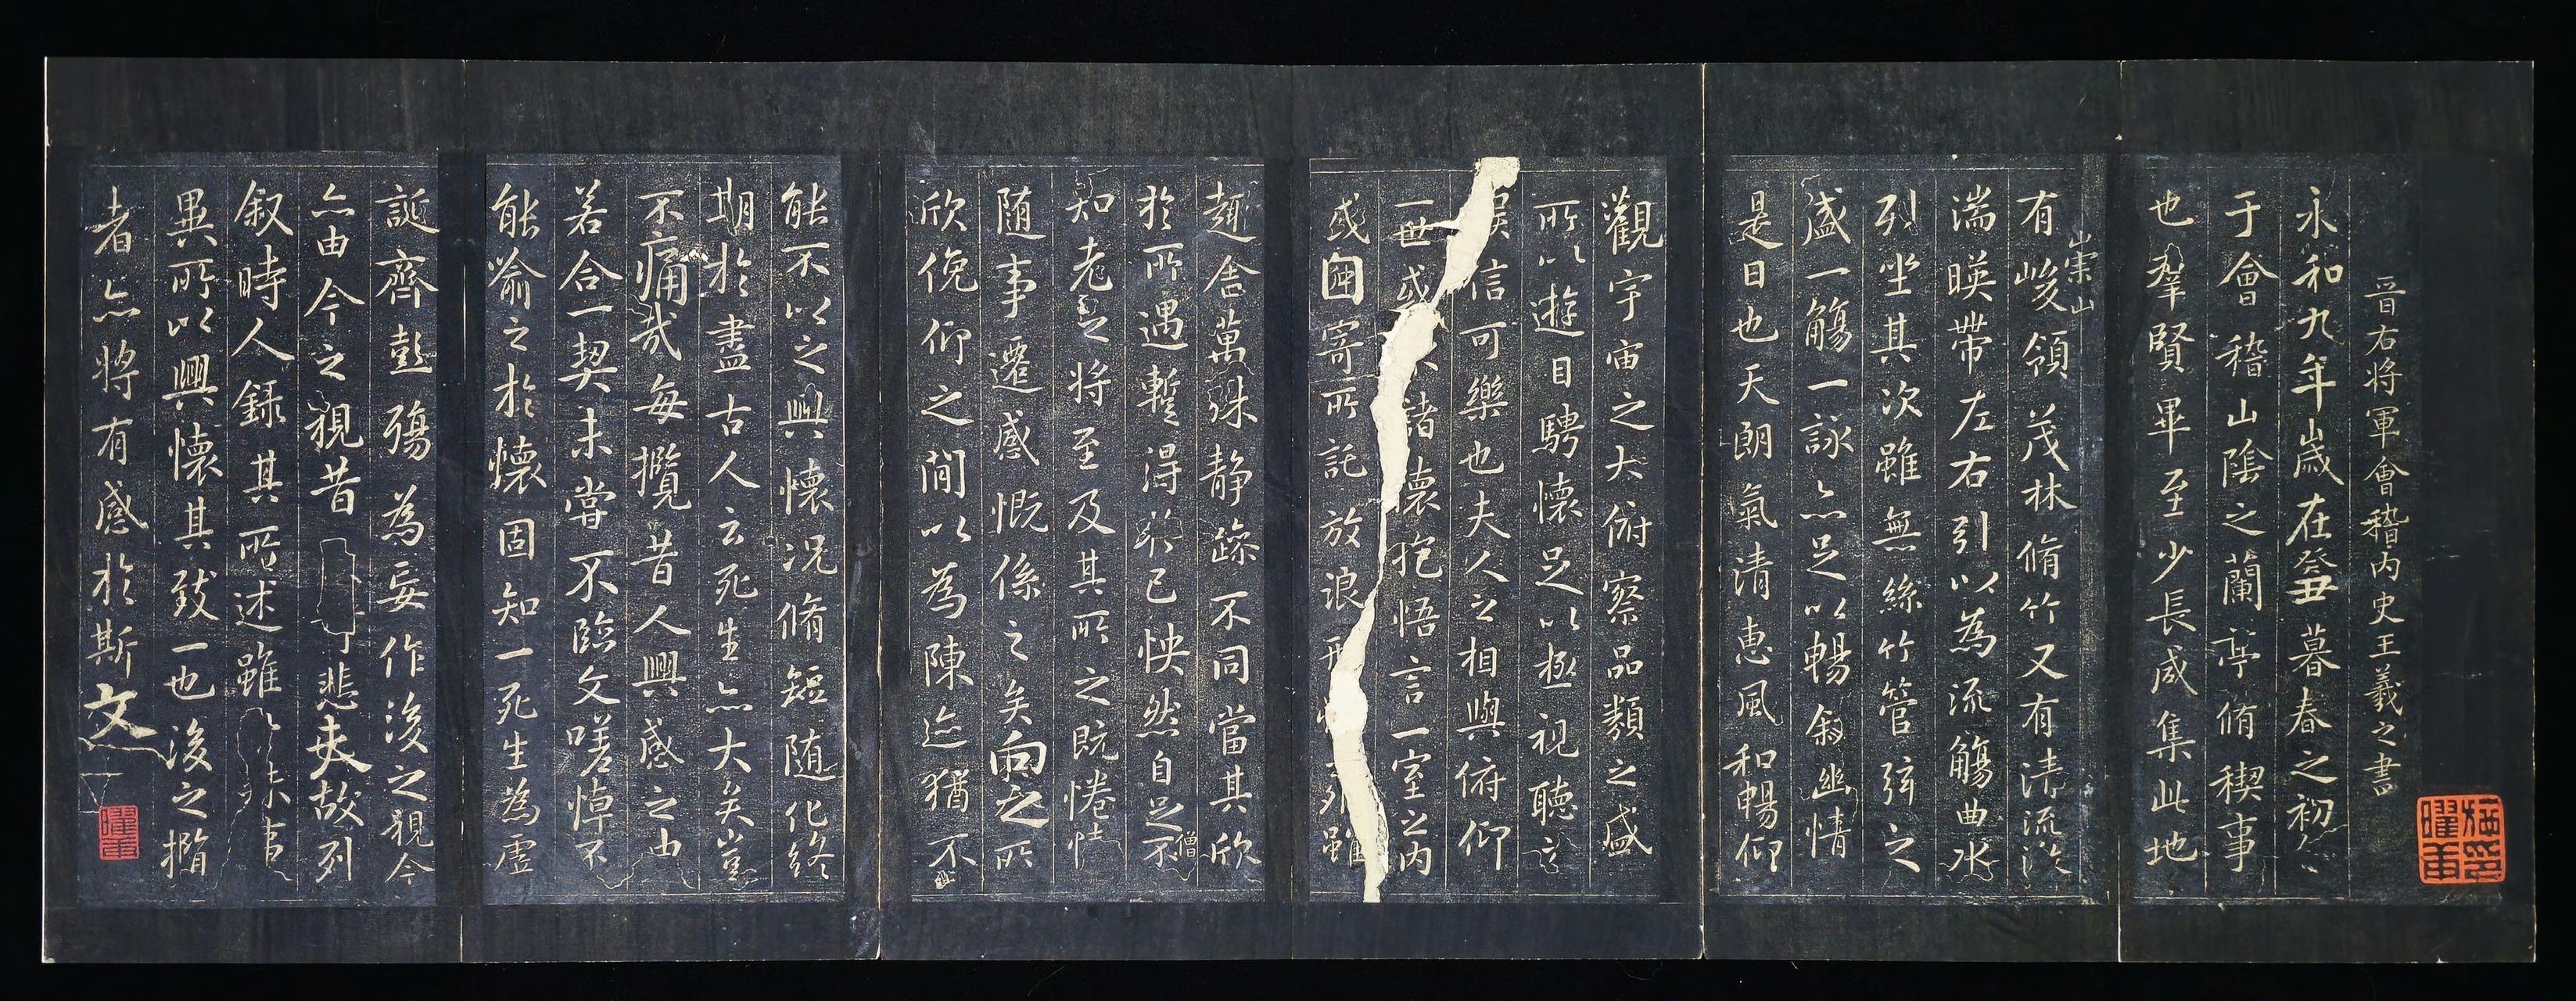 晉右將軍會稽內史王羲之書
永和九年歲在癸丑暮春之初會
于會稽山陰之蘭亭脩稧事
也羣賢畢至少長咸集此地
崇山
有峻領茂林脩竹又有清流激
湍暎帶左右引以為流觴曲水
列坐其次雖無絲竹管弦之
盛一觴一詠亦足以暢敘幽情
是日也天朗氣清惠風和暢仰
觀宇宙之大俯察品類之盛
所以遊目騁懷足以極視聽之
娛信可樂也夫人之相與俯仰
一世或諸懷抱悟言一室之內
或因寄所託放浪形外雖
趣舍萬殊靜躁不同當其欣
於所遇蹔得於己怏然自足不
僧
知老之將至及其所之既惓情
隨事遷感慨係之矣向之所
欣俛仰之間以為陳迹猶不
能不以之興懷況脩短隨化終
期於盡古人云死生亦大矣豈
不痛哉每攬昔人興感之由
若合一契未嘗不臨文嗟悼不
能喻之於懷固知一死生為虛
誕齊彭殤為妄作後之視今
亦由今之視昔悲夫故列
敘時人錄其所述雖世殊事
異所以興懷其致一也後之攬
者亦將有感於斯文